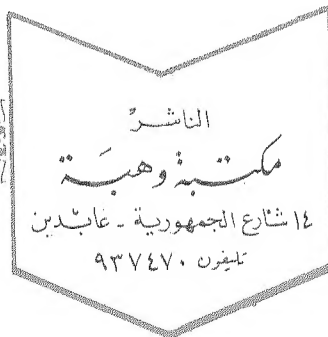 الناشر
مكتبة وهبة
١٤ شارع الجمهورية - عابدين
تليفون ٩٣٧٤٧٠